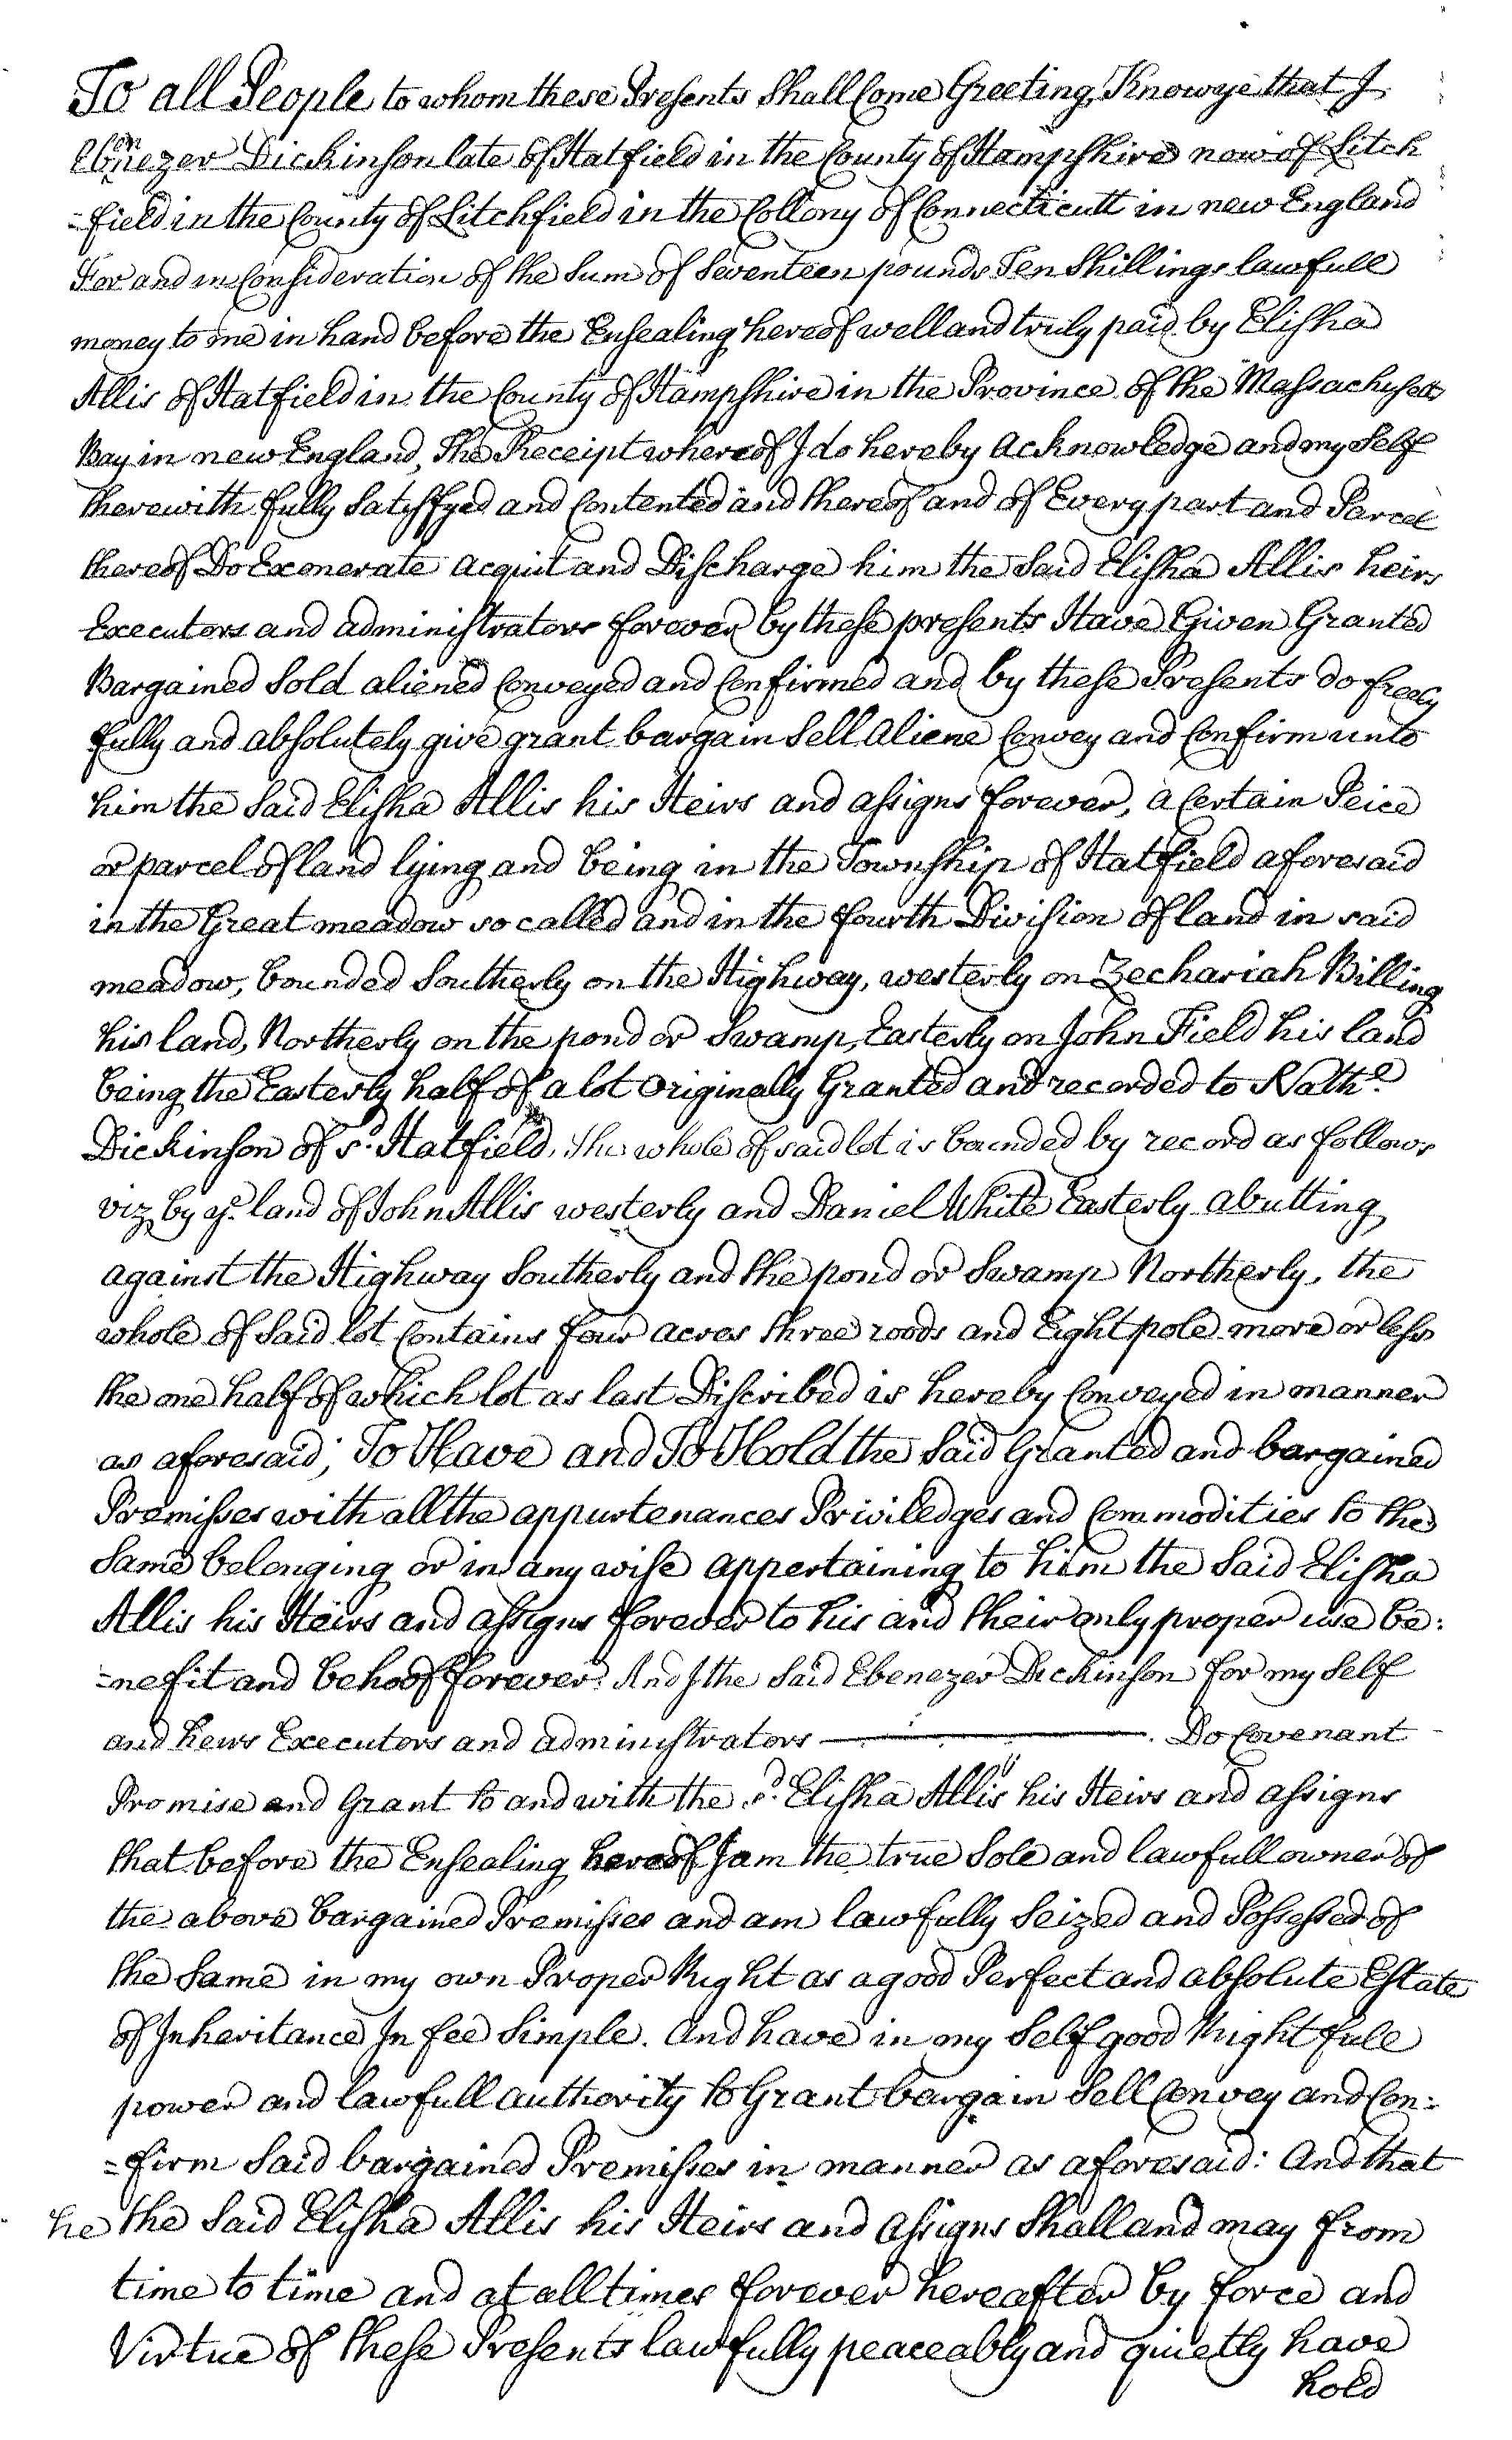 To all People to whom these Presents Shall Come Greeting, Know ye that I
Ebenezer Dickinson late of Hatfield in the County of Hampshire now of Litch
-field in the County of Litchfield in the Collony of Connecticutt in new England
For and in Consideration of the Sum of Seventeen pounds Ten Shillings lawfull
money to me in hand before the Ensealing hereof well and truly paid by Elisha
Allis of Hatfield in the County of Hampshire in the Province of the Massachusets
Bay in new England, The Receipt whereof I do hereby Acknowledge and my Self
therewith fully Satisfyed and Contented and thereof and of Every part and Parcel
thereof Do Exonerate acquit and Discharge him the Said Elisha Allis heirs
Executors and administrators forever by these presents Have Given Granted
Bargained Sold aliened Conveyed and Confirmed and by these Presents do freely
fully and absolutely give grant bargain Sell Aliene Convey and Confirm unto
him the Said Elisha Allis his Heirs and assigns forever, a Certain Peice
or parcel of land lying and being in the Township of Hatfield aforesaid
in the Great meadow so called and in the fourth Division of land in said
meadow, bounded Southerly on the Highway, westerly on Zechariah Billing
his land, Northerly on the pond or Swamp, Easterly on John Field his land
being the Easterly half of a lot originally Granted and recorded to Nathll
Dickinson of sd. Hatfield, The whole of said lot is bounded by record as follows
viz, by ye. land of John Allis westerly and Daniel White Easterly abutting
against the Highway Southerly and the pond or Swamp Northerly, the
whole of Said lot Contains four acres three roods and Eight pole more or less
the one half of which lot as last Discribed is hereby Conveyed in manner
as aforesaid; To Have and To Hold the Said Granted and bargained
Premisses with all the appurtenances Priviledges and Commodities to the
Same belonging or in any wise appertaining to him the Said Elisha
Allis his Heirs and assigns forever to his and their only proper use be:
=nefit and behoof forever. And I the Said Ebenezer Dickinson for my Self
and heirs Executors and administrators ——— Do Covenant
Promise and Grant to and with the sd. Elisha Allis his Heirs and assigns
that before the Ensealing hereof I am the true Sole and lawfull owner of
the above bargained Premisses and am lawfully Seized and Possessed of
the Same in my own Proper Right as a good Perfect and absolute Estate
of Inheritance In fee Simple. And have in my Self good Right full
power and lawfull authority to Grant bargain Sell Convey and Con:
=firm Said bargained Premisses in manner as aforesaid: And that
he the Said Elisha Allis his Heirs and assigns Shall and may from
time to time and at all times forever hereafter by force and
Virtue of these Presents lawfully peaceably and quietly have
hold